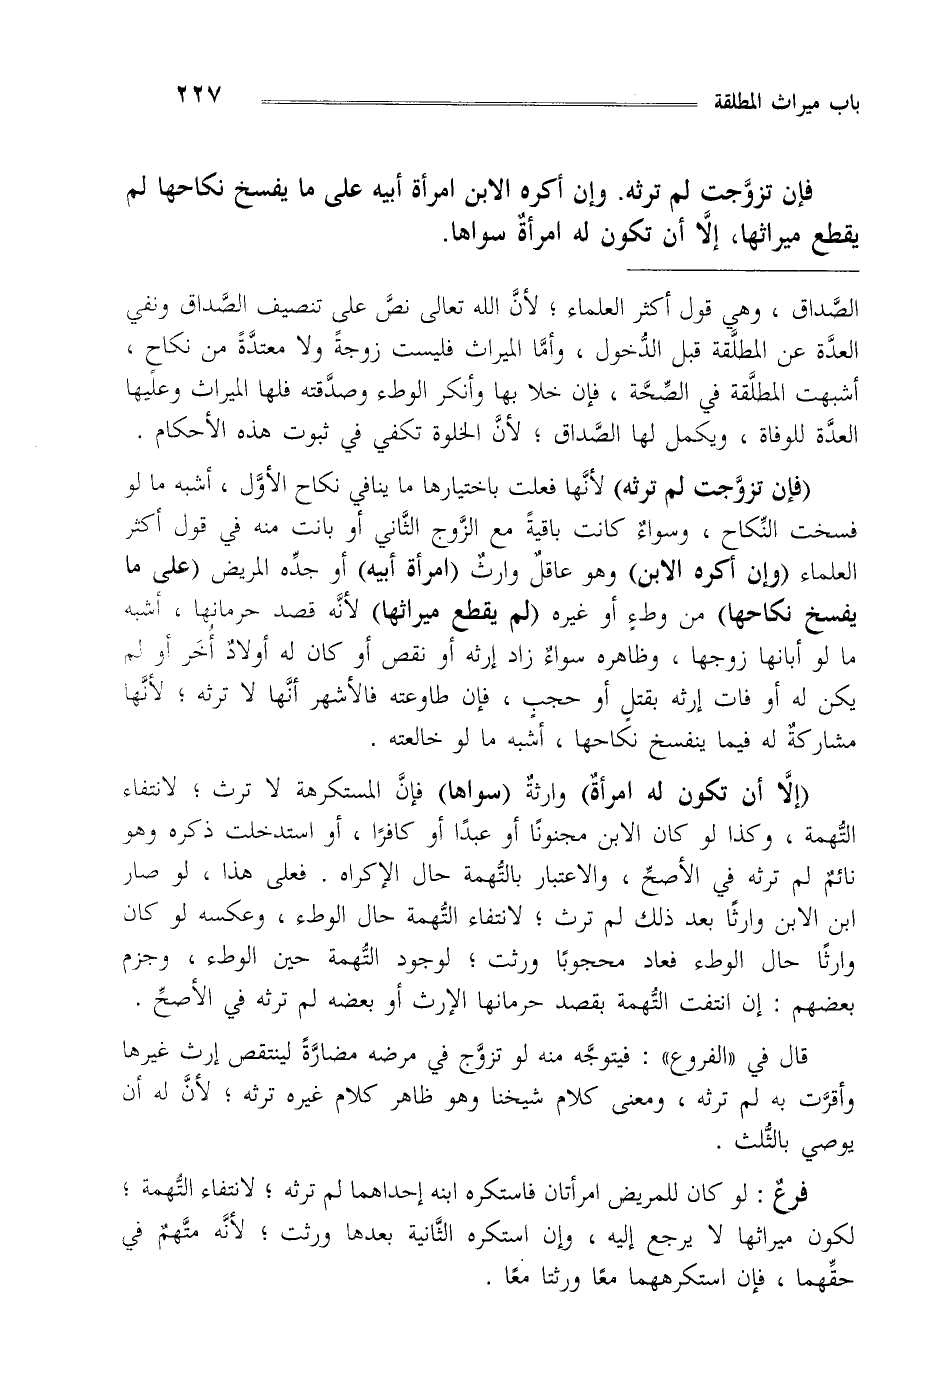 باب ميراث المطلقة ٢٢٧
فإن تزوَّجت لم ترثه. وإن أكره الابن امرأة أبيه على ما يفسخ نكاحها لم
يقطع ميراثها، إلَّا أن تكون له امرأةٌ سواها.
الصَّداق ، وهي قول أكثر العلماء ؛ لأنَّ الله تعالى نصَّ على تنصيف الصَّداق ونفي
العدَّة عن المطلَّقة قبل الدُّخول ، وأمَّا الميراث فليست زوجةً ولا معتدَّةً من نكاحٍ ،
أشبهت المطلَّقة في الصِّحَّة ، فإن خلا بها وأنكر الوطء وصدَّقته فلها الميراث وعليها
العدَّة للوفاة ، ويكمل لها الصَّداق ؛ لأنَّ الخلوة تكفي في ثبوت هذه الأحكام .
(فإن تزوَّجت لم ترثه) لأنَّها فعلت باختيارها ما ينافي نكاح الأوَّل ، أشبه ما لو
فسخت النِّكاح ، وسواءٌ كانت باقيةً مع الزَّوج الثَّاني أو بانت منه في قول أكثر
العلماء (وإن أكره الابن) وهو عاقلٌ وارثٌ (امرأة أبيه) أو جدِّه المريض (على ما
يفسخ نكاحها) من وطءٍ أو غيره (لم يقطع ميراثها) لأنَّه قصد حرمانها ، أشبه
ما لو أبانها زوجها ، وظاهره سواءٌ زاد إرثه أو نقص أو كان له أولادٌ أُخَر أو لم
يكن له أو فات إرثه بقتلٍ أو حجبٍ ، فإن طاوعته فالأشهر أنَّها لا ترثه ؛ لأنَّها
مشاركةٌ له فيما ينفسخ نكاحها ، أشبه ما لو خالعته .
(إلَّا أن تكون له امرأةٌ) وارثةٌ (سواها) فإنَّ المستكرهة لا ترث ؛ لانتفاء
التُّهمة ، وكذا لو كان الابن مجنونًا أو عبدًا أو كافرًا ، أو استدخلت ذكره وهو
نائمٌ لم ترثه في الأصحِّ ، والاعتبار بالتُّهمة حال الإكراه . فعلى هذا ، لو صار
ابن الابن وارثًا بعد ذلك لم ترث ؛ لانتفاء التُّهمة حال الوطء ، وعكسه لو كان
وارثًا حال الوطء فعاد محجوبًا ورثت ؛ لوجود التُّهمة حين الوطء ، وجزم
بعضهم : إن انتفت التُّهمة بقصد حرمانها الإرث أو بعضه لم ترثه في الأصحِّ .
قال في «الفروع» : فيتوجَّه منه لو تزوَّج في مرضه مضارَّةً لينتقص إرث غيرها
وأقرَّت به لم ترثه ، ومعنى كلام شيخنا وهو ظاهر كلام غيره ترثه ؛ لأنَّ له أن
يوصي بالثُّلث .
فرعٌ : لو كان للمريض امرأتان فاستكره ابنه إحداهما لم ترثه ؛ لانتفاء التُّهمة ؛
لكون ميراثها لا يرجع إليه ، وإن استكره الثَّانية بعدها ورثت ؛ لأنَّه متَّهمٌ في
حقِّهما ، فإن استكرههما معًا ورثتا معًا .